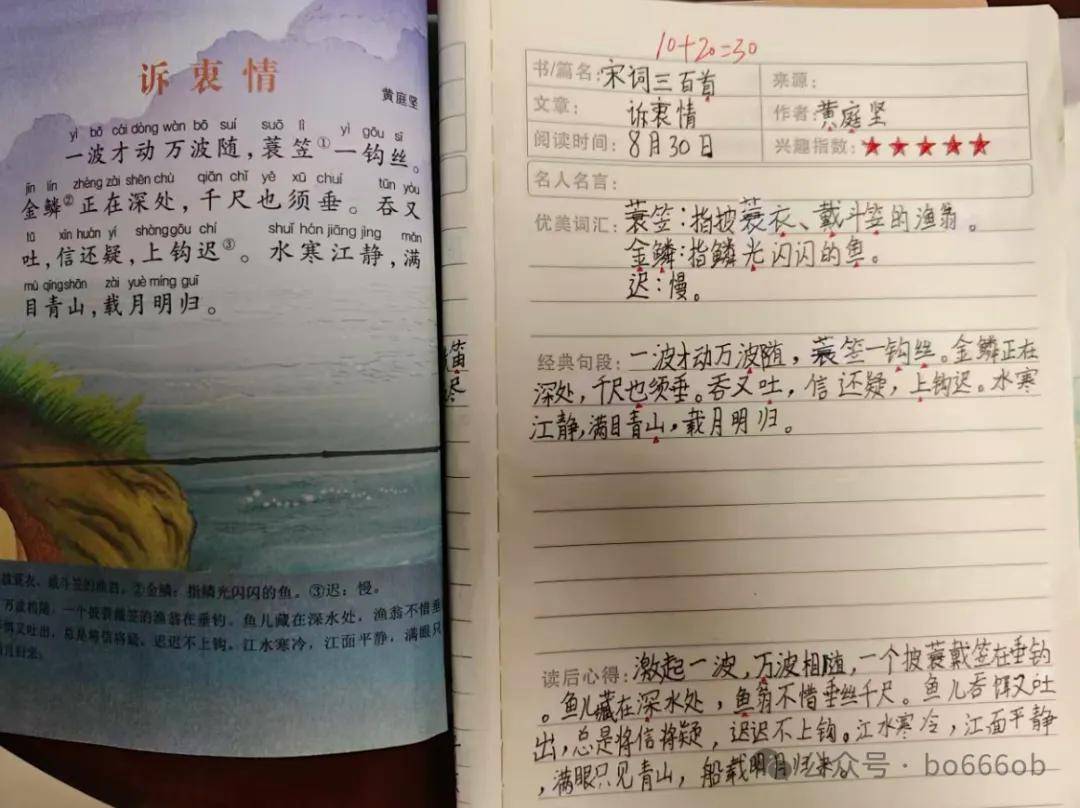 诉衷情
黄庭坚
yì bō cái dòng wàn bō suí suō lì yì gōu sī
一波才动万波随,蓑笠①一钩丝。
jīn lín zhèng zài shēn chù qiān chǐ yě xū chuí tūn yòu
金鳞②正在深处,千尺也须垂。吞又
tǔ xìn huán yí shàng gōu chí shuǐ hán jiāng jìng mǎn
吐,信还疑,上钩迟③。水寒江静,满
mù qīng shān zài yuè míng guī
目青山,载月明归。
披蓑衣、戴斗笠的渔翁。②金鳞:指鳞光闪闪的鱼。③迟:慢。
万波相随,一个披蓑戴笠的渔翁在垂钓。鱼儿藏在深水处,渔翁不惜垂
饵又吐出,总是将信将疑,迟迟不上钩。江水寒冷,江面平静,满眼只
明月归来。
笛
10+20=30
书/篇名:宋词三百首 来源:
文章: 诉衷情 作者:黄庭坚
阅读时间: 8月30日 兴趣指数:★★★★★
名人名言:
优美词汇:蓑笠:指披蓑衣、戴斗笠的渔翁。
金鳞:指鳞光闪闪的鱼。
迟:慢。
经典句段:一波才动万波随,蓑笠一钩丝。金鳞正在
深处,千尺也须垂。吞又吐,信还疑,上钩迟。水寒
江静,满目青山,载月明归。
读后心得:激起一波,万波相随,一个披蓑戴笠在垂钓
。鱼儿藏在深水处,鱼翁不惜垂丝千尺。鱼儿吞饵又吐
出,总是将信将疑,迟迟不上钩。江水寒冷,江面平静
,满眼只见青山,船载明月归来。
众号·bo666ob